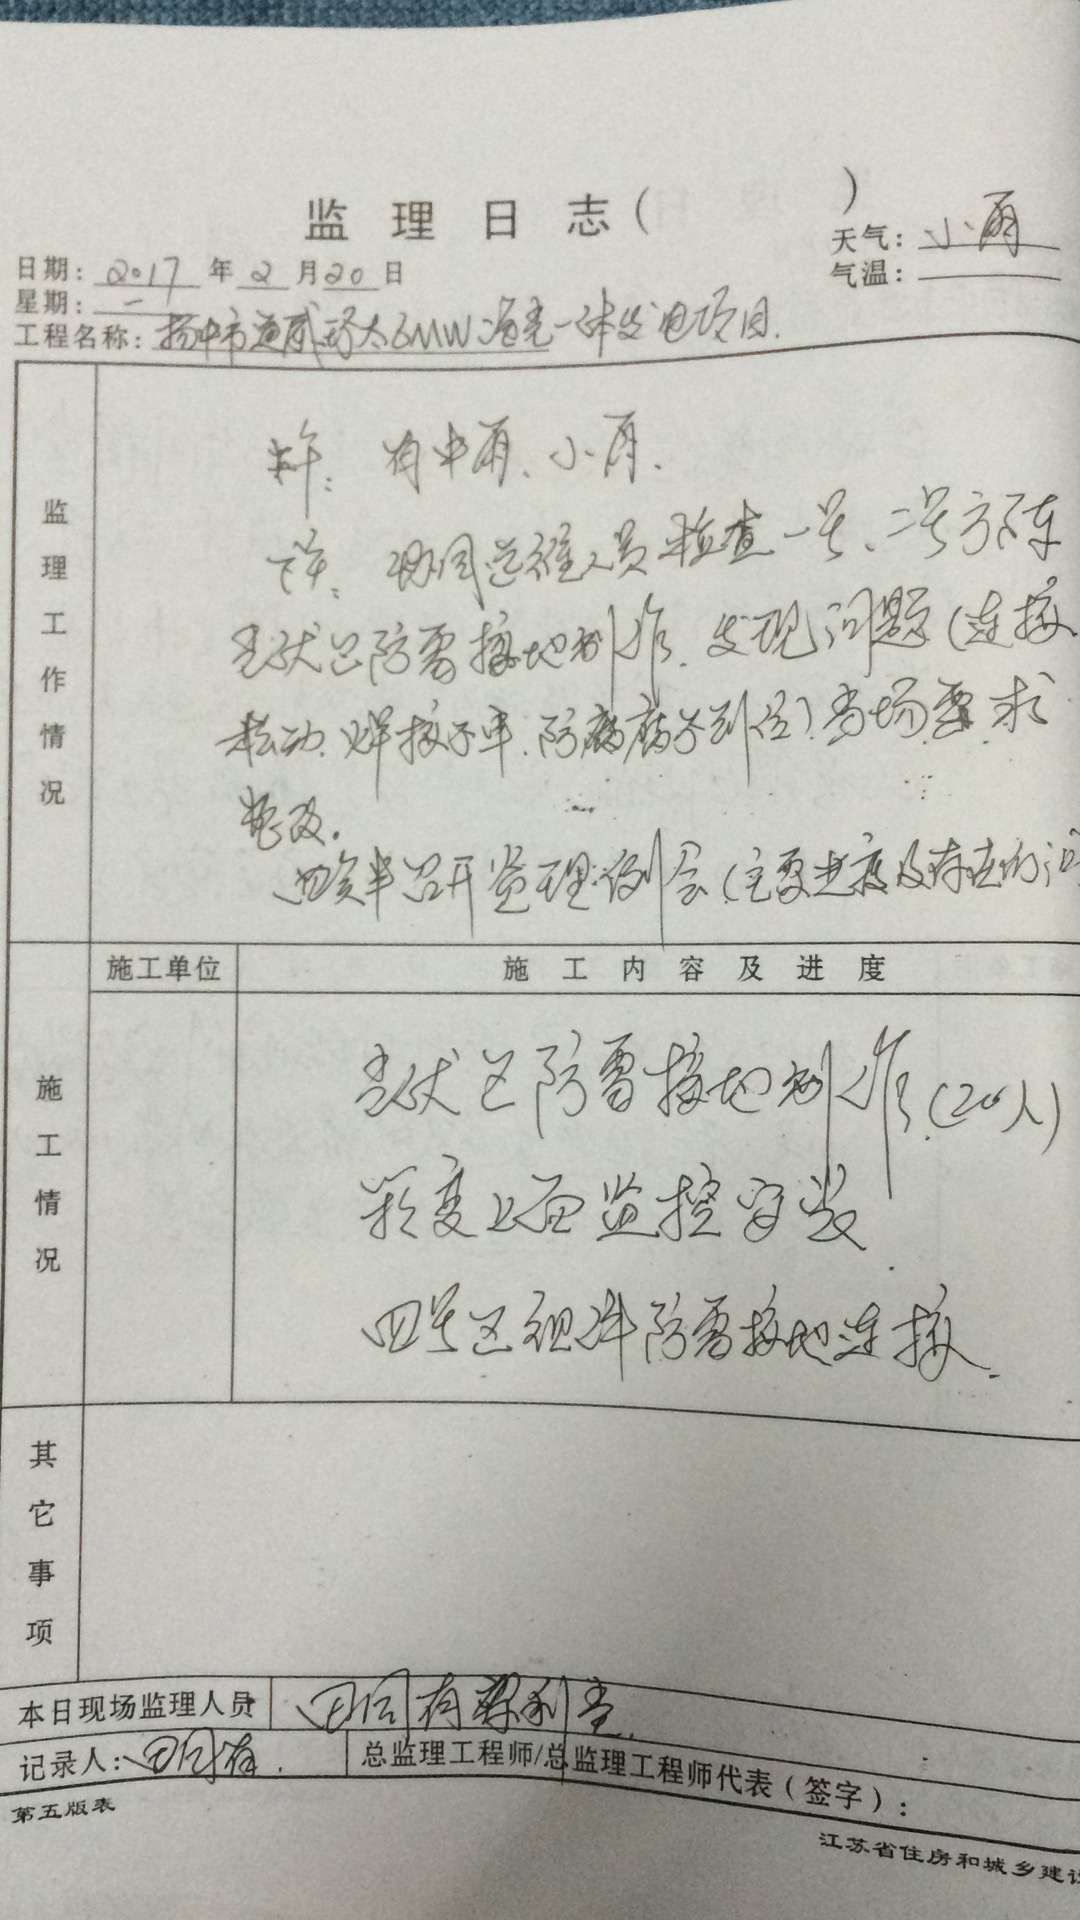 监理日志( )
天气: 小雨
日期: 2017 年 2 月 20 日
气温:
星期: 一
工程名称: 扬中市通威 MW渔光一体发电项目.
监理工作情况
上午: 有中雨、小雨.
下午: 协同运维人员检查一号、二号方阵
光伏区防雷接地制作. 发现问题(连接
松动、焊接不牢、防腐 不到位)当场要求
整改.
四点半召开监理例会(主要进度及存在的问
施工单位
施工内容及进度
施工情况
光伏区防雷接地制作.(20人)
箱变上面监控安装
四号区组件防雷接地连接.
其它事项
本日现场监理人员 田同有
记录人: 田同有.
总监理工程师/总监理工程师代表(签字):
第五版表
江苏省住房和城乡建设